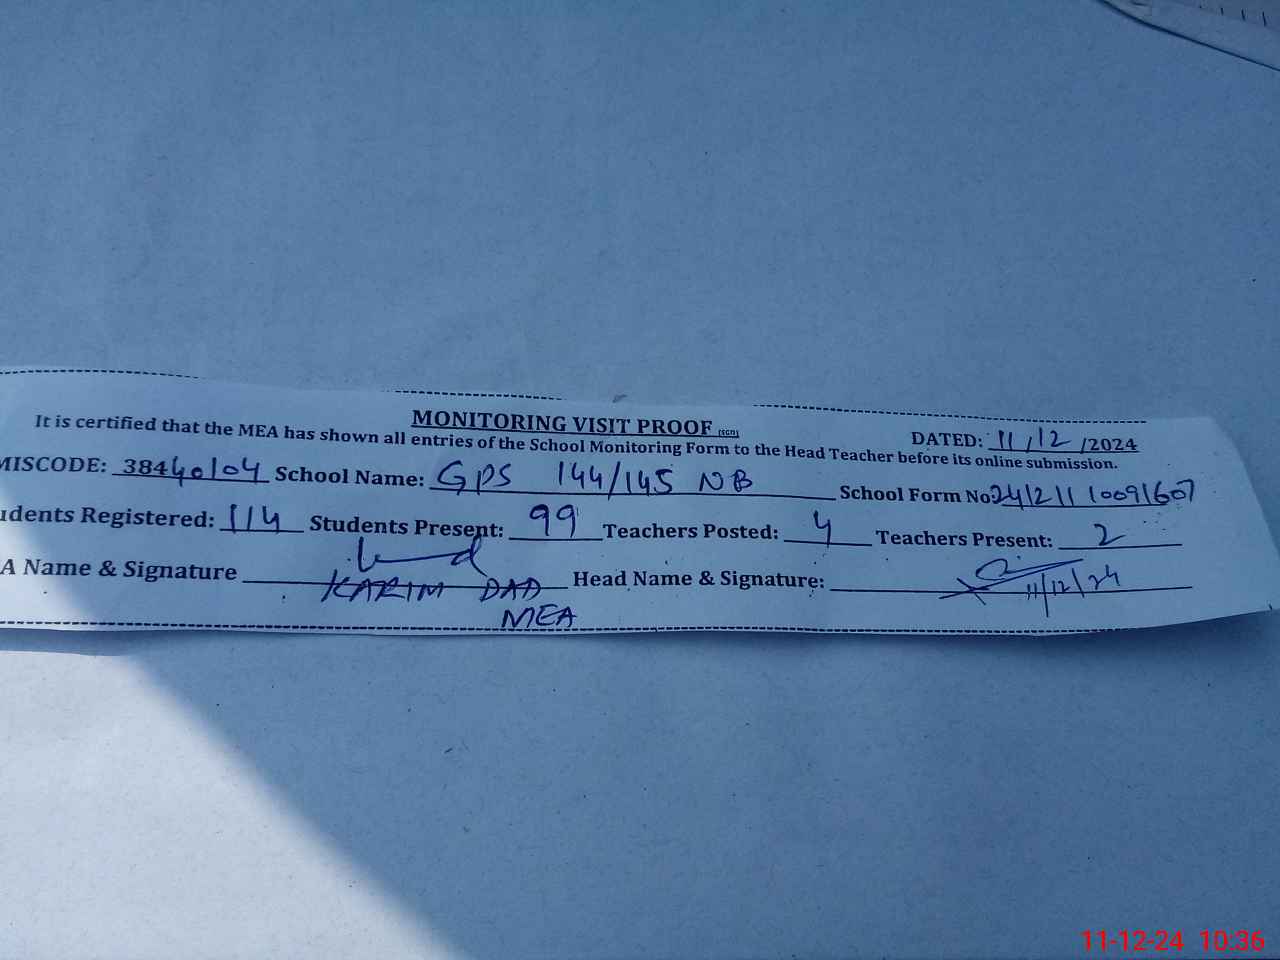 MONITORING VISIT PROOF (SGD)
DATED: 11/12/2024
It is certified that the MEA has shown all entries of the School Monitoring Form to the Head Teacher before its online submission.
MISCODE: 38440104 School Name: GPS 144/145 NB School Form No 24121110091607
dents Registered: 114 Students Present: 99 Teachers Posted: 4 Teachers Present: 2
A Name & Signature KARIM DAD Head Name & Signature: 11/12/24
MEA
11-12-24 10:36